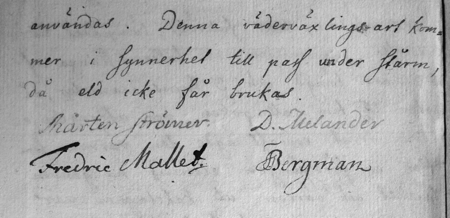 användas. Denna väderväxlings-art kom-
mer i synnerhet till pass under stärm,
då eld icke får brukas.
Mårten Strömer. D. Melander
Fredric Mallet. T Bergman